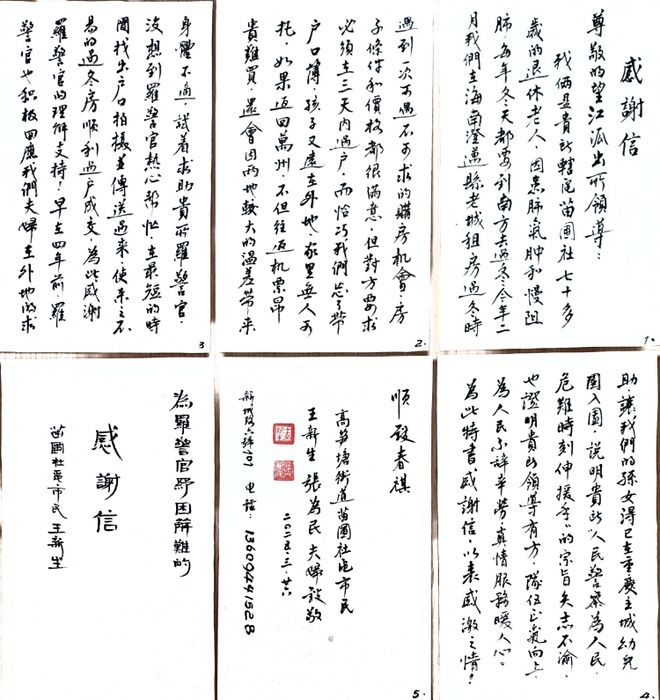 感謝信
尊敬的望江派出所領導：
我倆是貴所轄區苗圃社七十多
歲的退休老人、因患肺氣肿和慢阻
肺每年冬天都要到南方去過冬今年二
月我們在海南澄邁縣老城租房過冬時
1.
遇到一次可遇不可求的購房机會、房
子條件和價格都很滿意、但對方要求
必須在三天内過户、而恰巧我們忘带
户口薄、孩子又遠在外地、家里無人可
托、如果返回萬州、不但往返机票昂
貴難買、還會因兩地較大的温差带來
2.
身體不適、試着求助貴所羅警官、
没想到羅警官热心帮忙、在最短的時
間找出户口拍攝並傳送過來、使來之不
易的過冬房順利過户成交、為此感謝
羅警官的理解支持！早在四年前、羅
警官也积极回應我們夫婦在外地的求
3
助、讓我們的孫女得已在重慶主城幼兒
園入園、説明貴所"人民警察為人民、
危難時刻伸援手"的宗旨矢志不渝、
也證明貴所領導有方、隊伍正氣向上、
為人民不辞辛勞、真情服務暖人心。
為此特書感謝信、以表感激之情！
4
順致春祺
高笋塘街道苗圃社區市民
王新生 張為民夫婦致敬
二〇二五、三、廿六
电话：13600441528
5.
為羅警官紓困解難的
感謝信
苗圃社區市民王新生